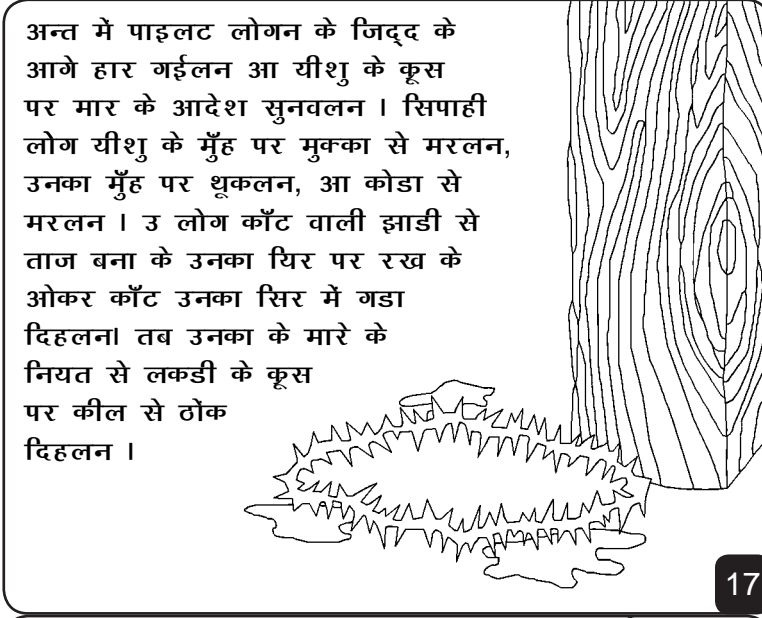 अन्त में पाइलट लोगन के जिद्द के
आगे हार गईलन आ यीशु के क्रूस
पर मार के आदेश सुनवलन ।  सिपाही
लोग यीशु के मुँह पर मुक्का से मरलन,
उनका मुँह पर थूकलन, आ कोडा से
मरलन ।  उ लोग काँट वाली झाडी से
ताज बना के उनका यिर पर रख के
ओकर काँट उनका सिर में गडा
दिहलन। तब उनका के मारे के
नियत से लकडी के क्रूस
पर कील से ठोंक
दिहलन ।
17